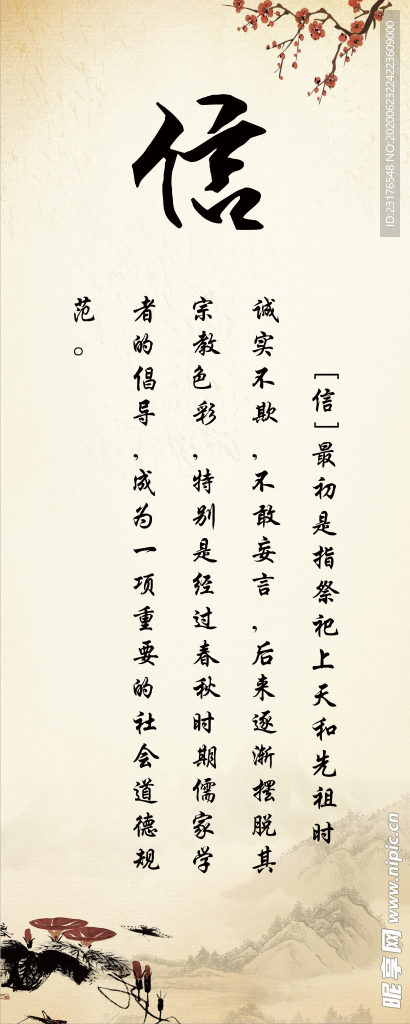 信
[信]最初是指祭祀上天和先祖时
诚实不欺,不敢妄言,后来逐渐摆脱其
宗教色彩,特别是经过春秋时期儒家学
者的倡导,成为一项重要的社会道德规
范。
ID:23176548 NO:20200623224223609000
昵享网 www.nipic.cn